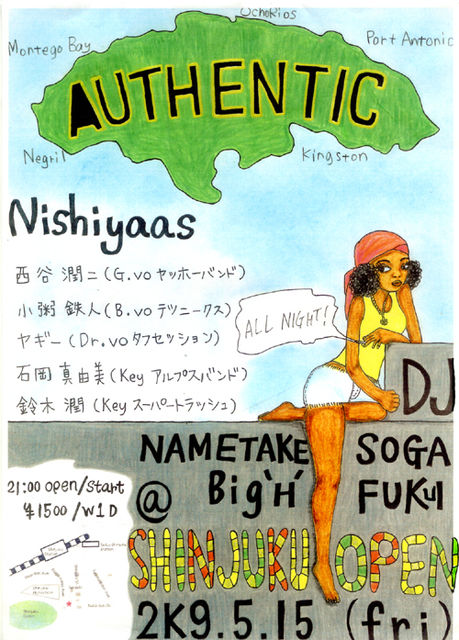 Ochorios
Montego Bay
Port Antonio
AUTHENTIC
Negril
Kingston
Nishiyaas
西谷 潤二 (G.vo ヤッホーバンド)
小粥 鉄人 (B.vo デツニークス)
ヤギー (Dr.vo タフセッション)
石岡 真由美 (Key アルプスバンド)
鈴木 潤 (Key スーパートラッシュ)
ALL NIGHT!
DJ
NAMETAKE SOGA
@ Big"H" FUKUI
21:00 open/start
¥1500 /W1D
SHINJUKU OPEN
2K9.5.15 (fri)